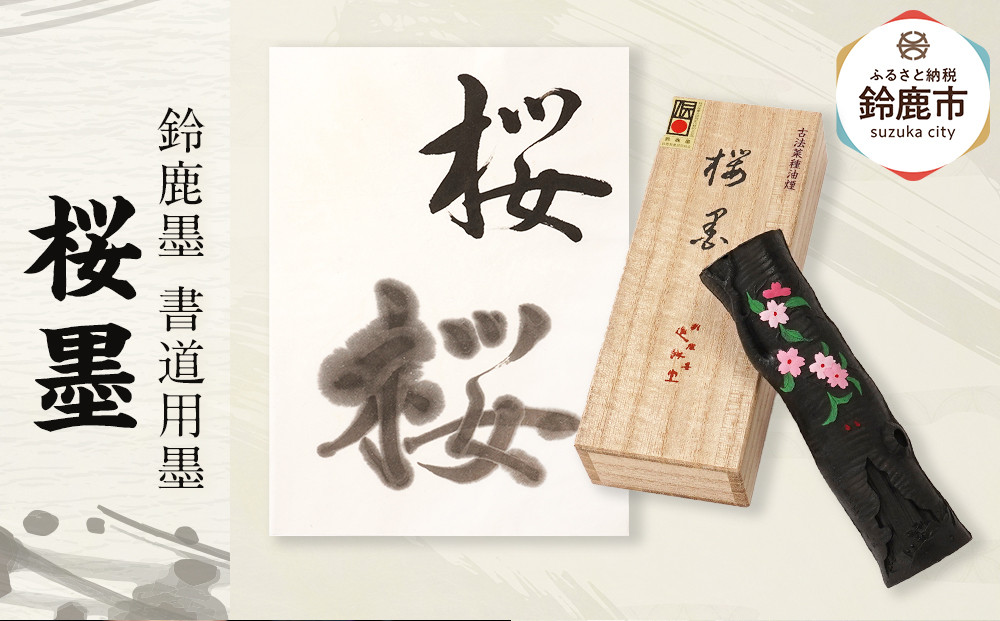 鈴鹿墨 書道用墨
桜墨
桜
桜
古法菜種油煙
桜墨
伝
ふるさと納税
鈴鹿市
suzuka city